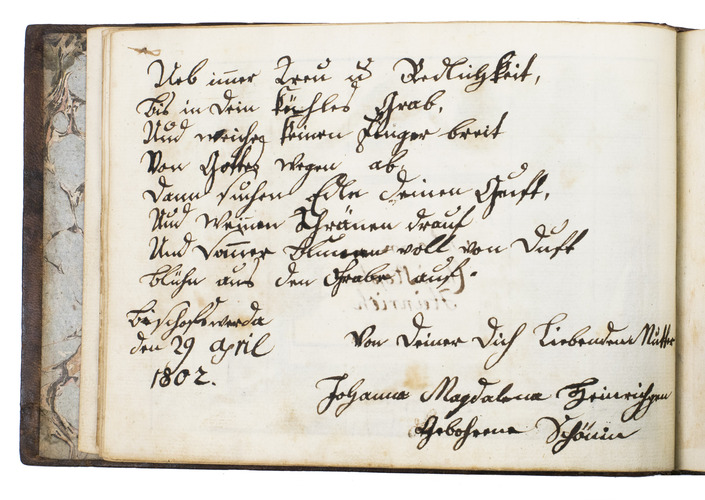 Ueb immer Treu u Redlichkeit,
bis in dein kühles Grab,
Und weiche keinen Finger breit
Von Gottes wegen ab,
Dann suchen Edle deinen Gruft,
Und weinen Thränen drauf
Und Somer blumen voll von Duft
blühn aus den Grabe auf.
bischofswerda
den 29 April
1802.
Von deiner dich Liebenden Mutter
Johanna Magdalena Heinrichen
Gebohrene Schönin